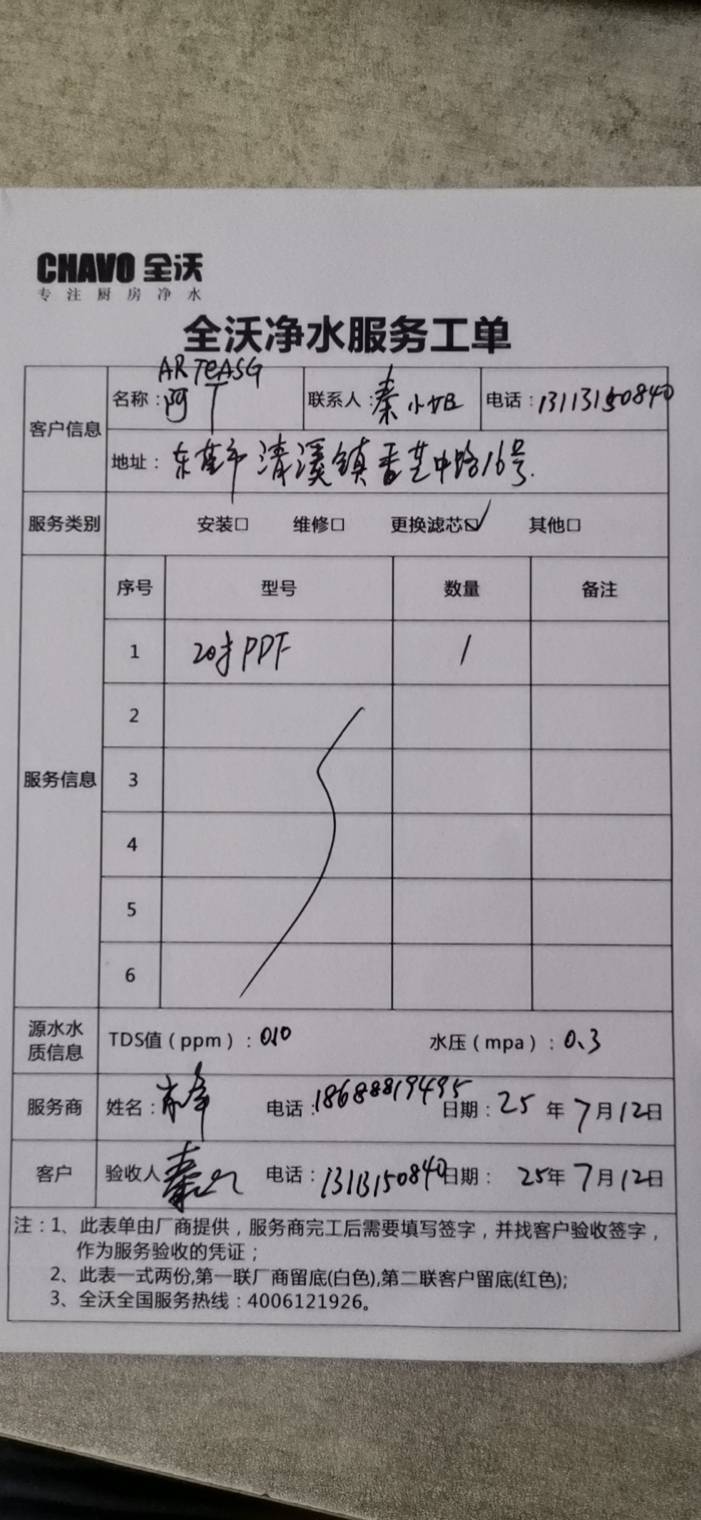 CHAVO 全沃
专注厨房净水
全沃净水服务工单
ARTEASG
客户信息 名称：阿丁 联系人：秦小姐 电话：13113150840
地址：东莞市清溪镇香芒中路16号.
服务类别 安装□ 维修□ 更换滤芯☑ 其他□
序号 型号 数量 备注
1 20寸PPF 1
2
服务信息 3
4
5
6
源水水质信息 TDS值（ppm）：010 水压（mpa）：0.3
服务商 姓名： 电话：18688819495 日期：25年7月12日
客户 验收人 秦 电话：13113150840 日期：25年7月12日
注：1、此表单由厂商提供，服务商完工后需要填写签字，并找客户验收签字，
作为服务验收的凭证；
2、此表一式两份,第一联厂商留底(白色),第二联客户留底(红色);
3、全沃全国服务热线：4006121926。